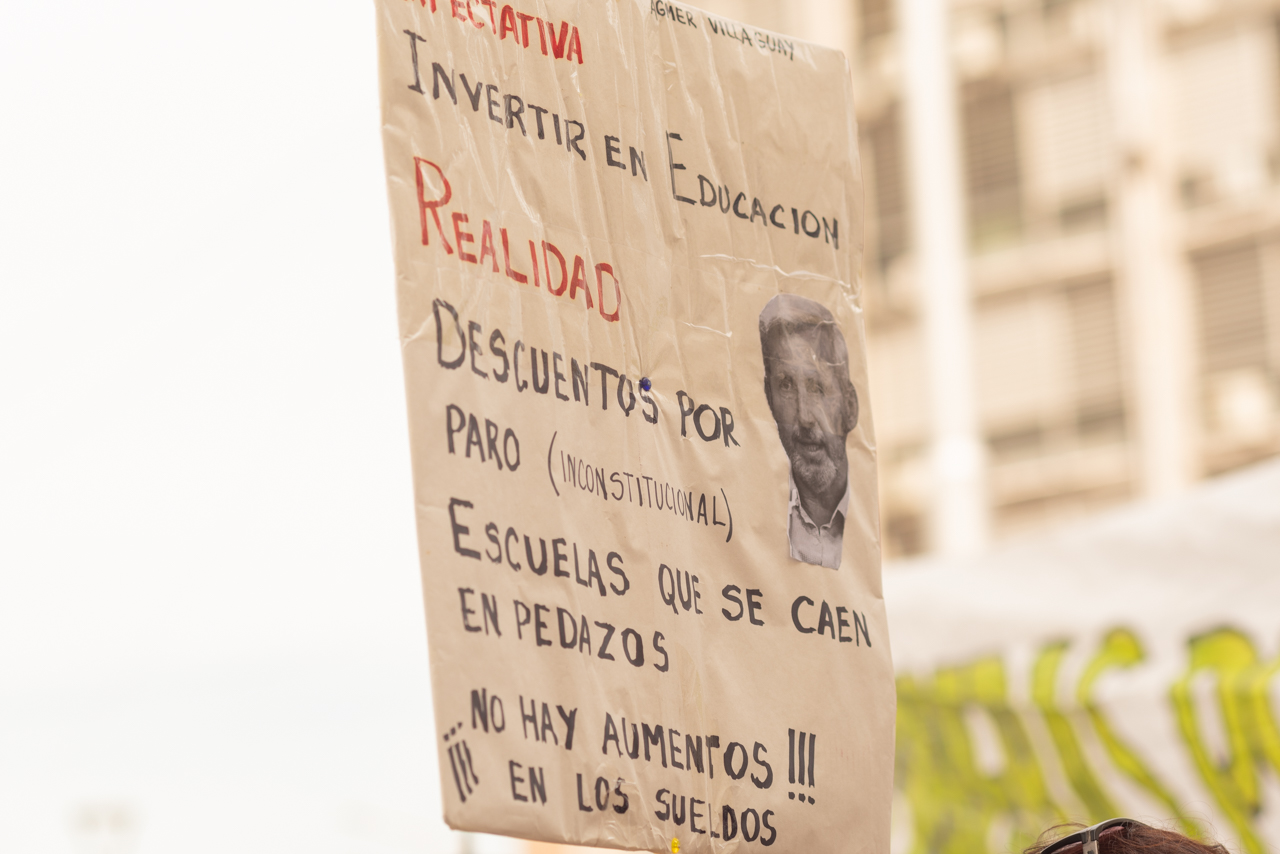 AGMER VILLAGUAY
EXPECTATIVA
INVERTIR EN EDUCACION
REALIDAD
DESCUENTOS POR
PARO (INCONSTITUCIONAL)
ESCUELAS QUE SE CAEN
EN PEDAZOS
¡¡¡ NO HAY AUMENTOS !!!
EN LOS SUELDOS